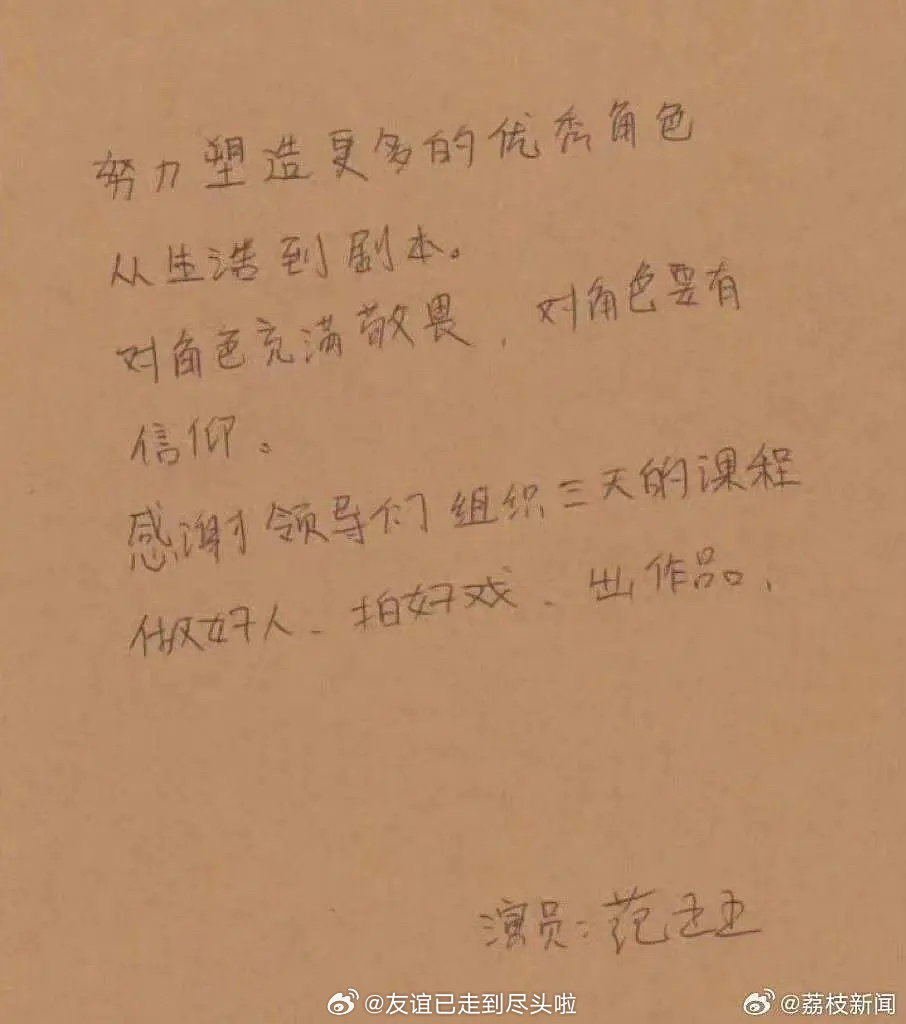 努力塑造更多的优秀角色
从生活到剧本。
对角色充满敬畏，对角色要有
信仰。
感谢领导们组织三天的课程
做好人、拍好戏、出作品、
演员：范丞丞
@友谊已走到尽头啦
@荔枝新闻